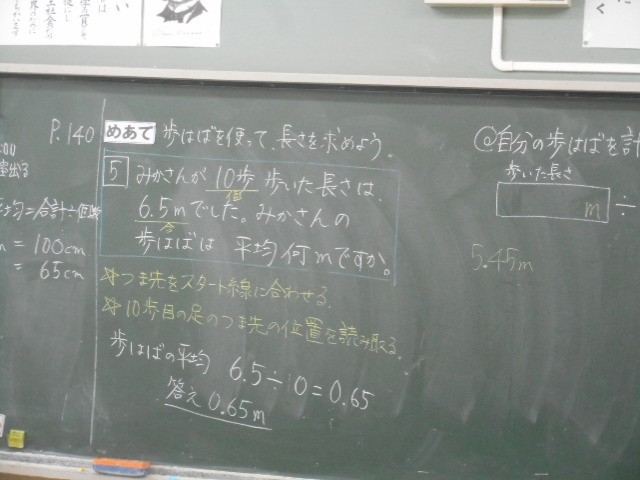 P.140
平均=合計÷個数
= 100cm
= 65cm
めあて 歩はばを使って、長さを求めよう。
5 みかさんが 10歩 歩いた長さは、
個
6.5mでした。みかさんの
合
歩はばは 平均何mですか。
☆つま先をスタート線に合わせる。
☆10歩目の足のつま先の位置を読み取る。
歩はばの平均 6.5÷10=0.65
答え 0.65m
@自分の歩はばを計
歩いた長さ
m ÷
5.45m